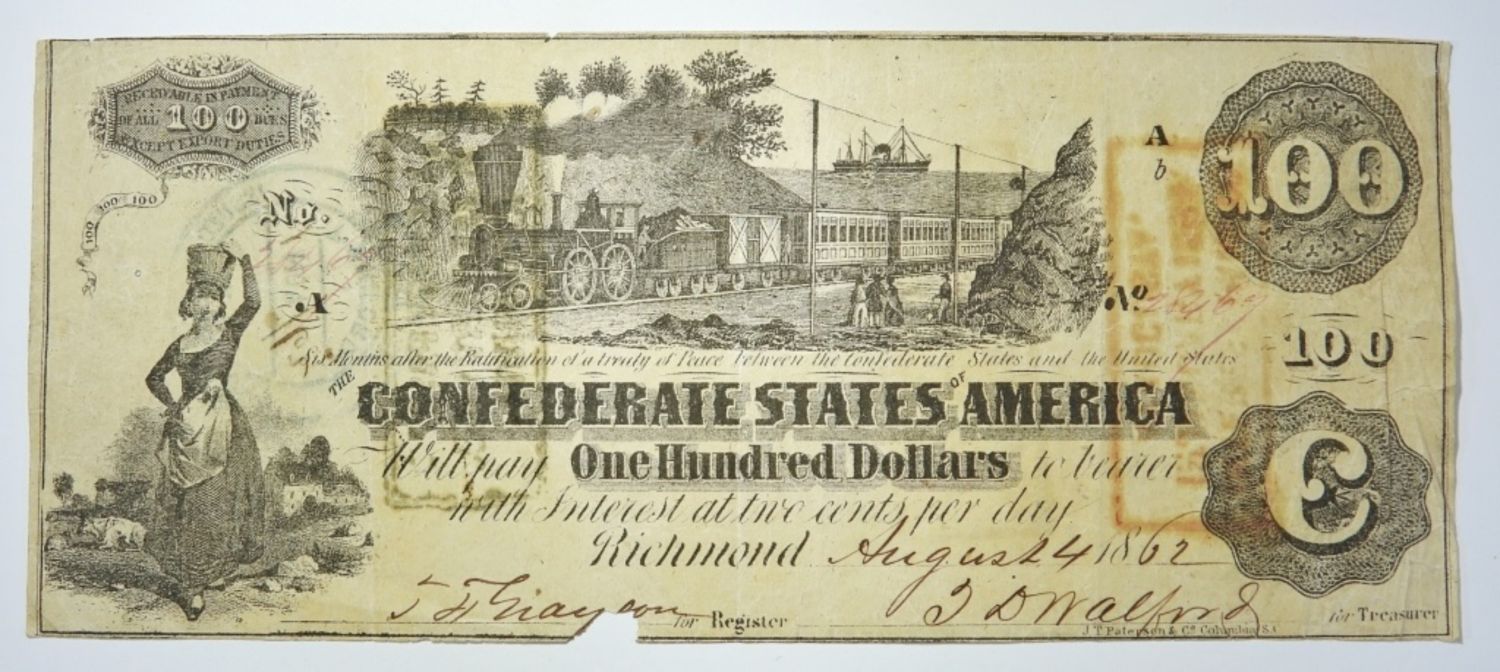 RECEIVABLE IN PAYMENT
OF ALL 100 DUES
EXCEPT EXPORT DUTIES
100 100 100
No.
A
A
b
100
No
100
Six Months after the Ratification of a treaty of Peace between the Confederate States and the United States
THE CONFEDERATE STATES OF AMERICA
Will pay One Hundred Dollars to bearer
with Interest at two cents per day
Richmond August 4 1862
C
for Register
J D Walford for Treasurer
J.T. Paterson & Co Columbia, S.C